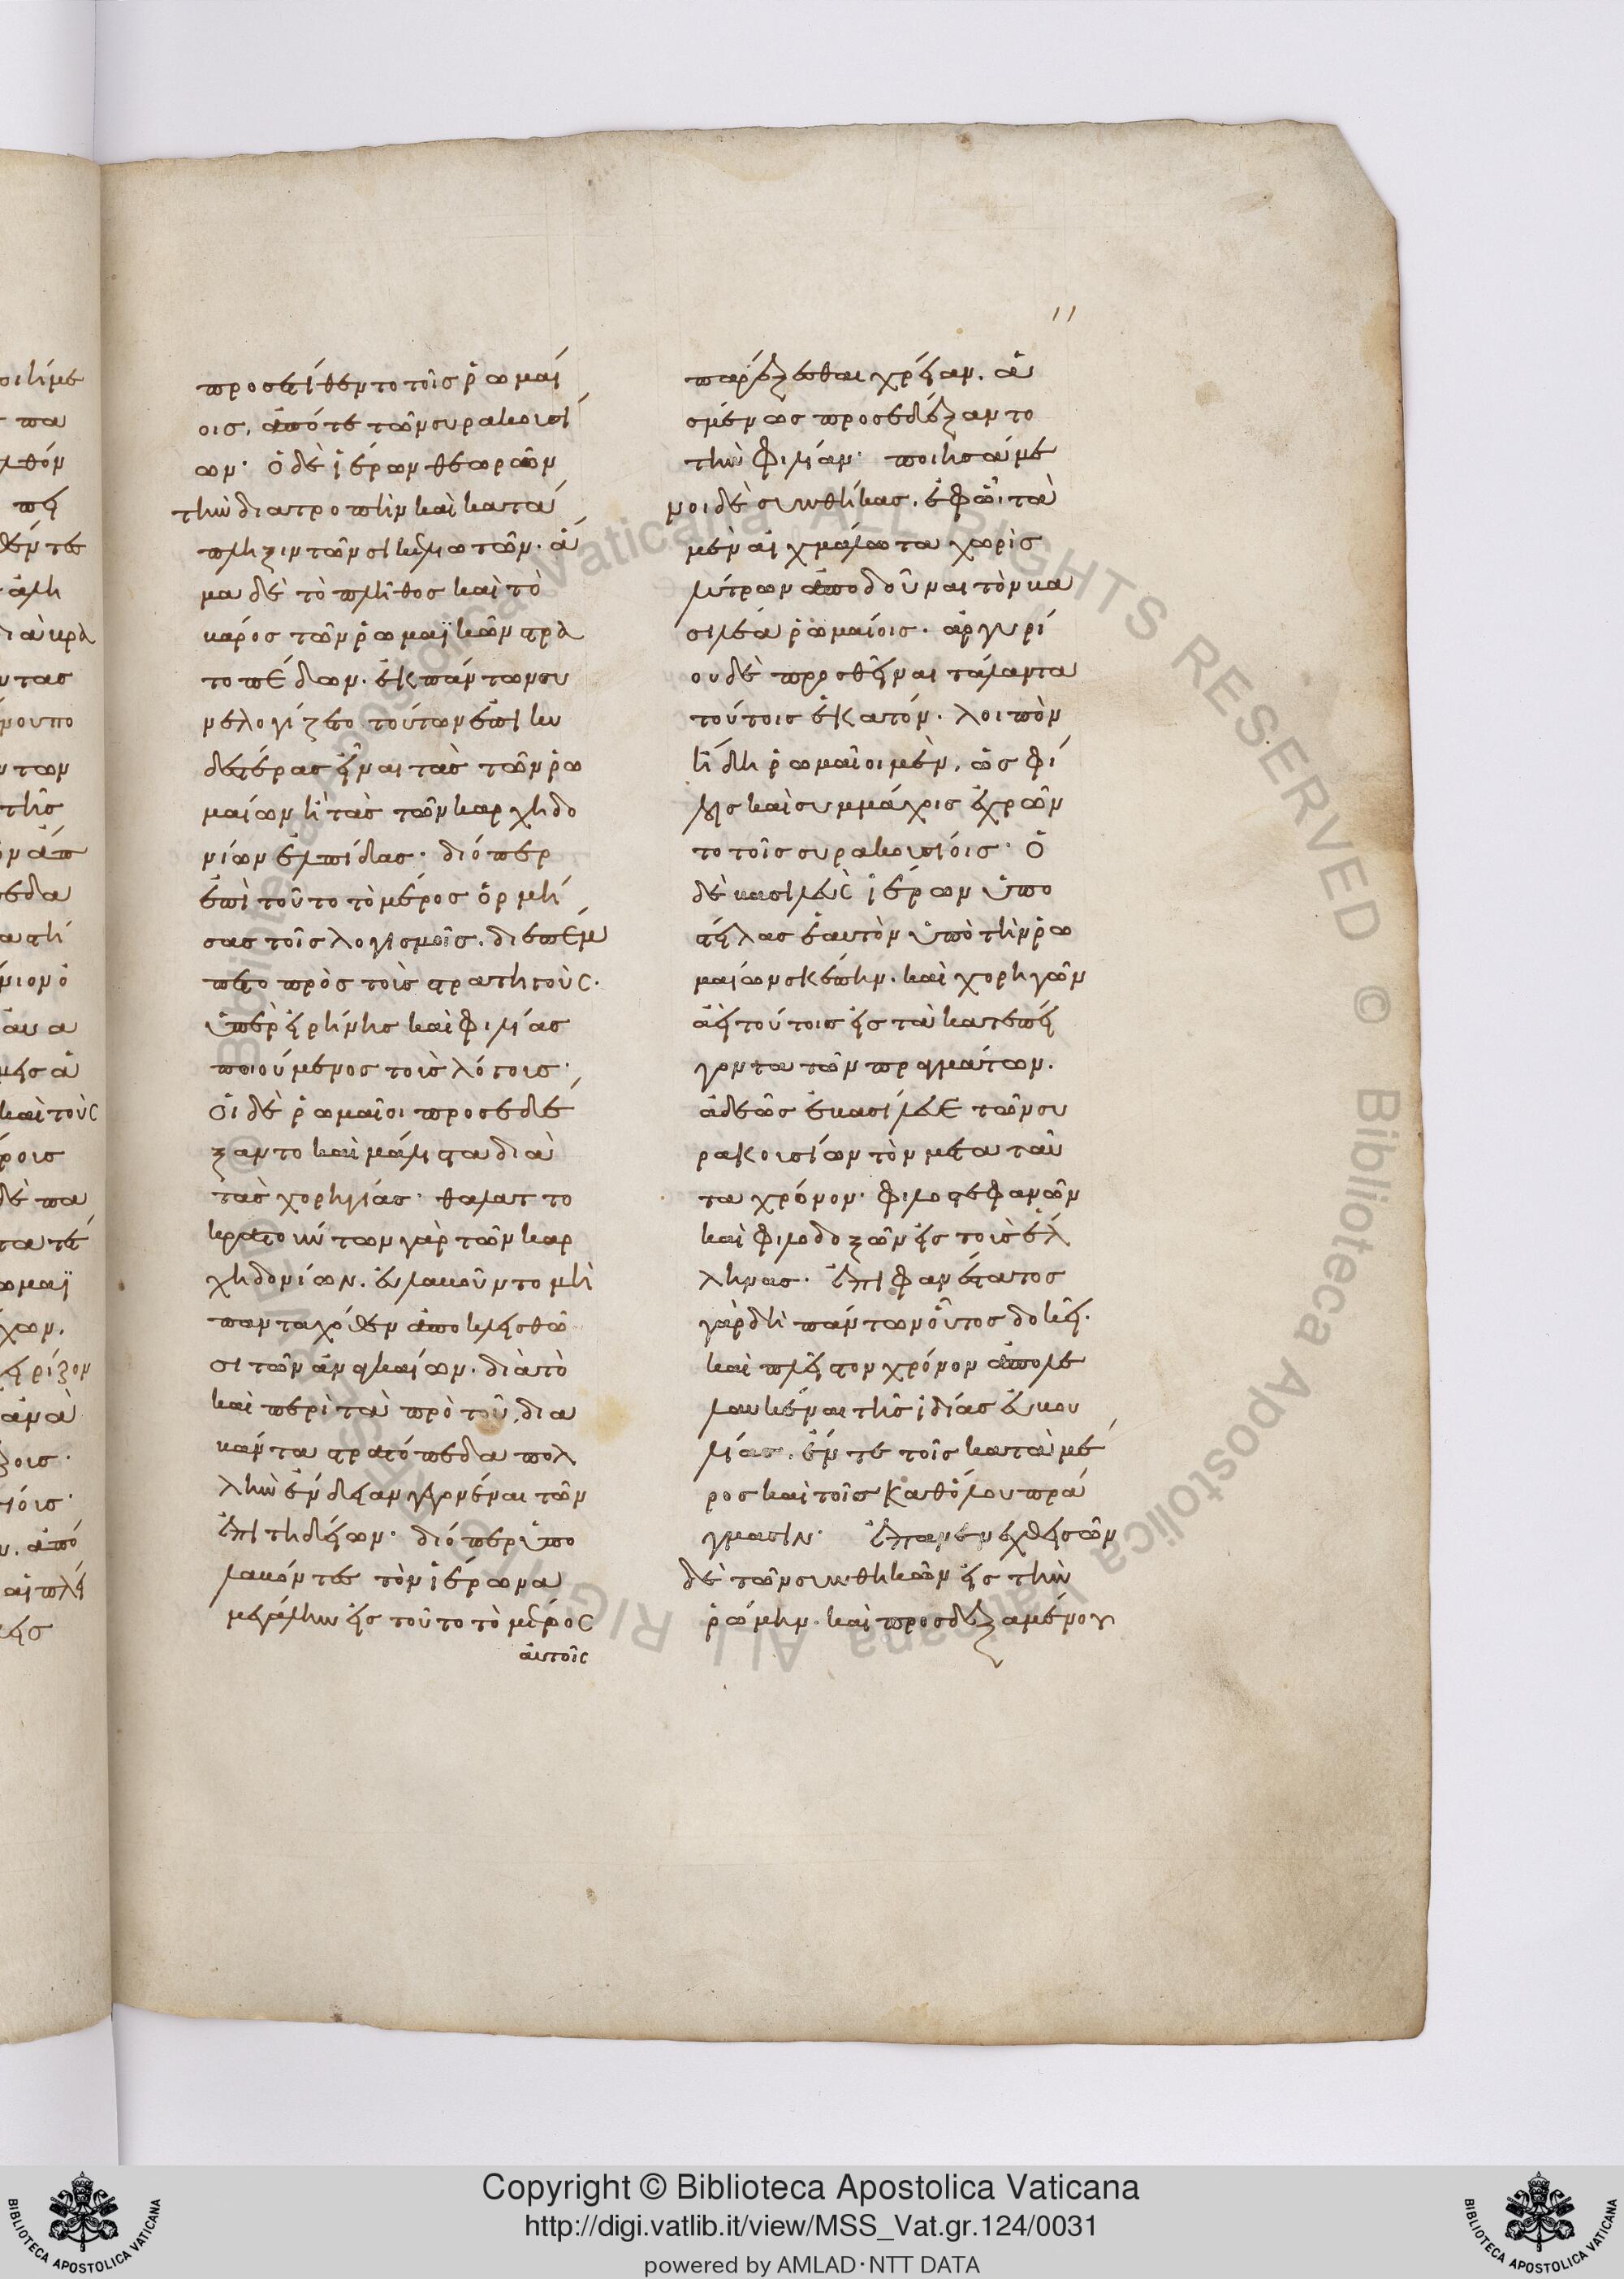 11
προσετίθεντο τοῖς ῥωμαί
οις, ἀπό τε τῶν συρακουσί
ων· ὁ δὲ ἱέρων θεωρῶν
τὴν διατροπὴν καὶ κατά
πληξιν τῶν σικελιωτῶν· ἅ
μα δὲ τὸ πλῆθος καὶ τὸ
βάρος τῶν ῥωμαϊκῶν στρα
τοπέδων. ἐκ πάντων συ
νελογίζετο τούτων ἐπικυ
δεστέρας εἶναι τὰς τῶν ῥω
μαίων ἢ τὰς τῶν καρχηδο
νίων ἐλπίδας. διόπερ
ἐπὶ τοῦτο τὸ μέρος ὁρμή
σας τοῖς λογισμοῖς. διεπέμ
πετο πρὸς τοὺς στρατηγοὺς.
ὑπὲρ εἰρήνης καὶ φιλίας
ποιούμενος τοὺς λόγους·
οἱ δὲ ῥωμαῖοι προσεδέ
ξαντο καὶ μάλιστα διὰ
τὰς χορηγίας· θαλαττο
κρατούντων γὰρ τῶν καρ
χηδονίων. εὐλαβοῦντο μὴ
πανταχόθεν ἀποκλεισθῶ
σι τῶν ἀναγκαίων. διὰ τὸ
καὶ περὶ τὰ πρὸ τοῦ, δια
βάντα στρατόπεδα πολ
λὴν ἔνδειαν γεγονέναι τῶν
ἐπιτηδείων· διόπερ ὑπο
λαβόντες τὸν ἱέρωνα
μεγάλην εἰς τοῦτο τὸ μέρος
αὐτοῖς
παρέξεσθαι χρείαν. ἀ
σμένως προσεδέξαντο
τὴν φιλίαν· ποιησάμε
νοι δὲ συνθήκας. ἐφ' ὧι τὰ
μὲν αἰχμάλωτα χωρὶς
λύτρων ἀποδοῦναι τὸν βα
σιλέα ῥωμαίοις. ἀργυρί
ου δὲ προσθεῖναι τάλαντα
τούτοις ἑκατόν. λοιπὸν
ἤδη ῥωμαῖοι μὲν, ὡς φί
λοις καὶ συμμάχοις ἐχρῶν
το τοῖς συρακουσίοις· ὁ
δὲ βασιλεὺς ἱέρων ὑπο
στείλας ἑαυτὸν ὑπὸ τὴν ῥω
μαίων σκέπην. καὶ χορηγῶν
ἀεὶ τούτοις εἰς τὰ κατεπεί
γοντα τῶν πραγμάτων.
ἀδεῶς ἐβασίλευε τῶν συ
ρακουσίων τὸν μετὰ ταῦ
τα χρόνον. φιλοστεφανῶν
καὶ φιλοδοξῶν εἰς τοὺς ἕλ
ληνας. ἐπιφανέστατος
γὰρ δὴ πάντων οὗτος δοκεῖ.
καὶ πλεῖστον χρόνον ἀπολε
λαυκέναι τῆς ἰδίας εὐβου
λίας. ἔν τε τοῖς κατὰ μέ
ρος καὶ τοῖς καθόλου πρά
γμασιν. ἐπανενεχθεισῶν
δὲ τῶν συνθηκῶν εἰς τὴν
ῥώμην. καὶ προσδεξαμένου
Copyright © Biblioteca Apostolica Vaticana
http://digi.vatlib.it/view/MSS_Vat.gr.124/0031
powered by AMLAD·NTT DATA